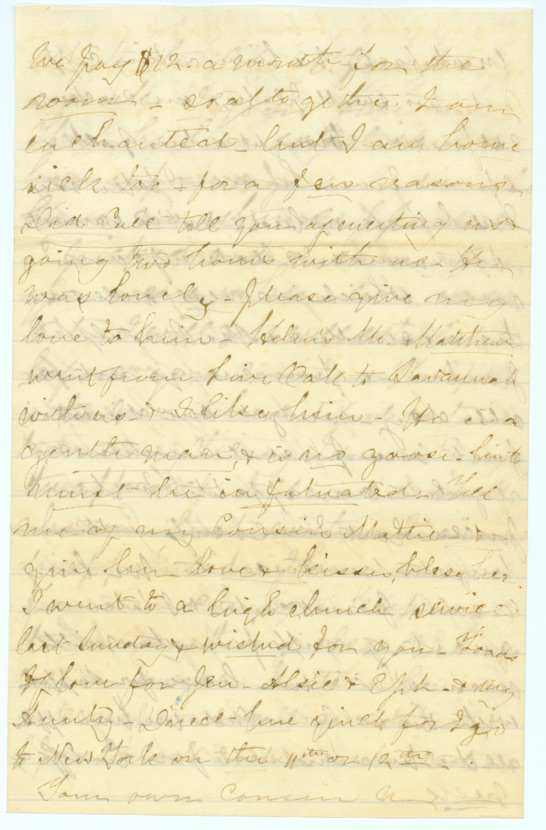 We pay $12 a month for the
room - so altogether I am
enchanted - but I am home
sick too - for a few reasons
Did tell you of meeting us &
going home with us - He
was lovely - Please give my
love to him - Mr. Matthews
went from Live Oak to Savannah
with us - & I like him - He is a
gentleman, & is no goose - but
must be infatuated - Tell
me of my Cousin Mattie &
give her love & kisses, bless her.
I went to a high church service
last Sunday & wished for you - Loads
of love for Jen - Elsie & Eph - & my
Aunty - Direct here for I go
to New York on the 11th or 12th.
Your own cousin